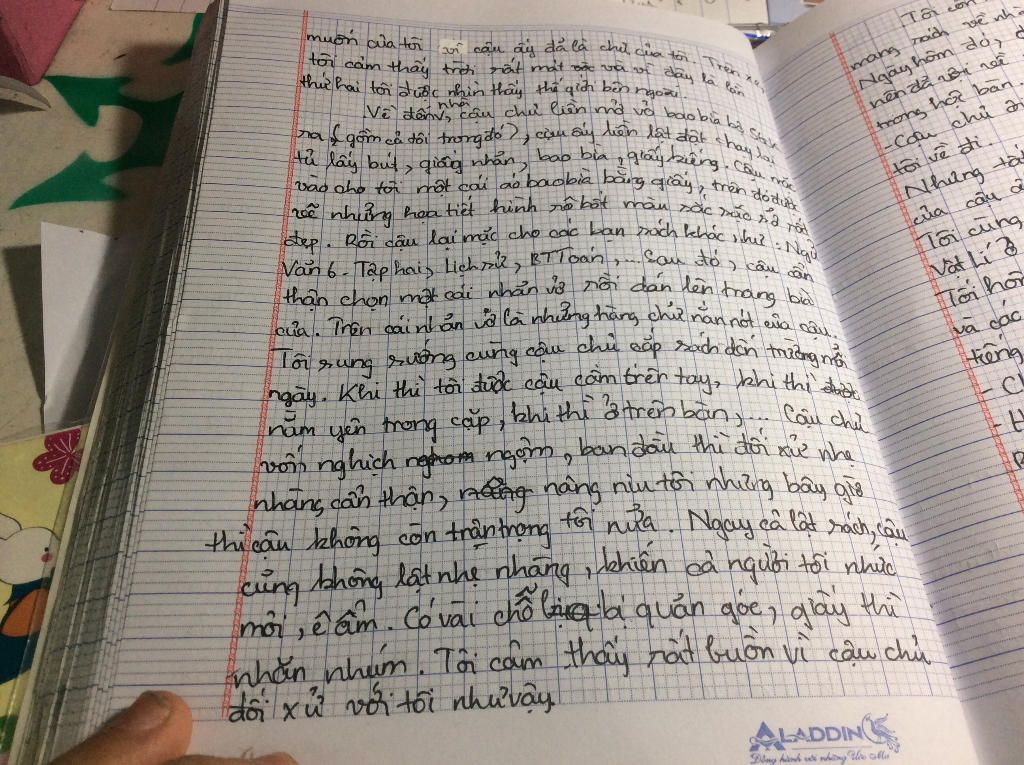 muốn của tôi vì cậu ấy đã là chủ của tôi. Trên xe,
tôi cảm thấy trời rất mát và vì đây là lần
thứ hai tôi được nhìn thấy thế giới bên ngoài.
Về đến nhà, cậu chủ liền mở vỏ bao bìa bộ
ra (gồm cả tôi trong đó), cậu ấy liền lật đật chạy lại
tủ lấy bút, giống nhãn, bao bìa, giấy kiếng. Cậu mặc
vào cho tôi một cái áo bao bìa bằng giấy, trên đó được
vẽ những hoa tiết hình rô bốt màu sắc sặc sỡ rất
đẹp. Rồi cậu lại mặc cho các bạn sách khác, như: Ngữ
Văn 6 - Tập hai, Lịch sử, BT Toán, ... Sau đó, cậu cẩn
thận chọn một cái nhãn vở rồi dán lên trang bìa
của. Trên cái nhãn vở là những hàng chữ nắn nót của cậu.
Tôi sung sướng cùng cậu chủ cắp sách đến trường mỗi
ngày. Khi thì tôi được cậu cầm trên tay, khi thì
nằm yên trong cặp, khi thì ở trên bàn, ... Cậu chủ
vốn nghịch ngợm, ban đầu thì đối xử nhẹ
nhàng, cẩn thận, nâng niu tôi nhưng bây giờ
thì cậu không còn trân trọng tôi nữa. Ngay cả lật sách, cậu
cũng không lật nhẹ nhàng, khiến cả người tôi nhức
mỏi, ê ẩm. Có vài chỗ bị quăn góc, giấy thì
nhăn nhúm. Tôi cảm thấy rất buồn vì cậu chủ
đối xử với tôi như vậy.
ALADDIN
Đồng hành với những Ước Mơ
Tôi còn
mang sách về nhà
Ngày hôm đó,
nên để
trong hộc bàn
- Cậu chủ
tôi về đi.
Nhưng
của cậu
Tôi cũng
Vật Lí
Tôi
và các
tiếng